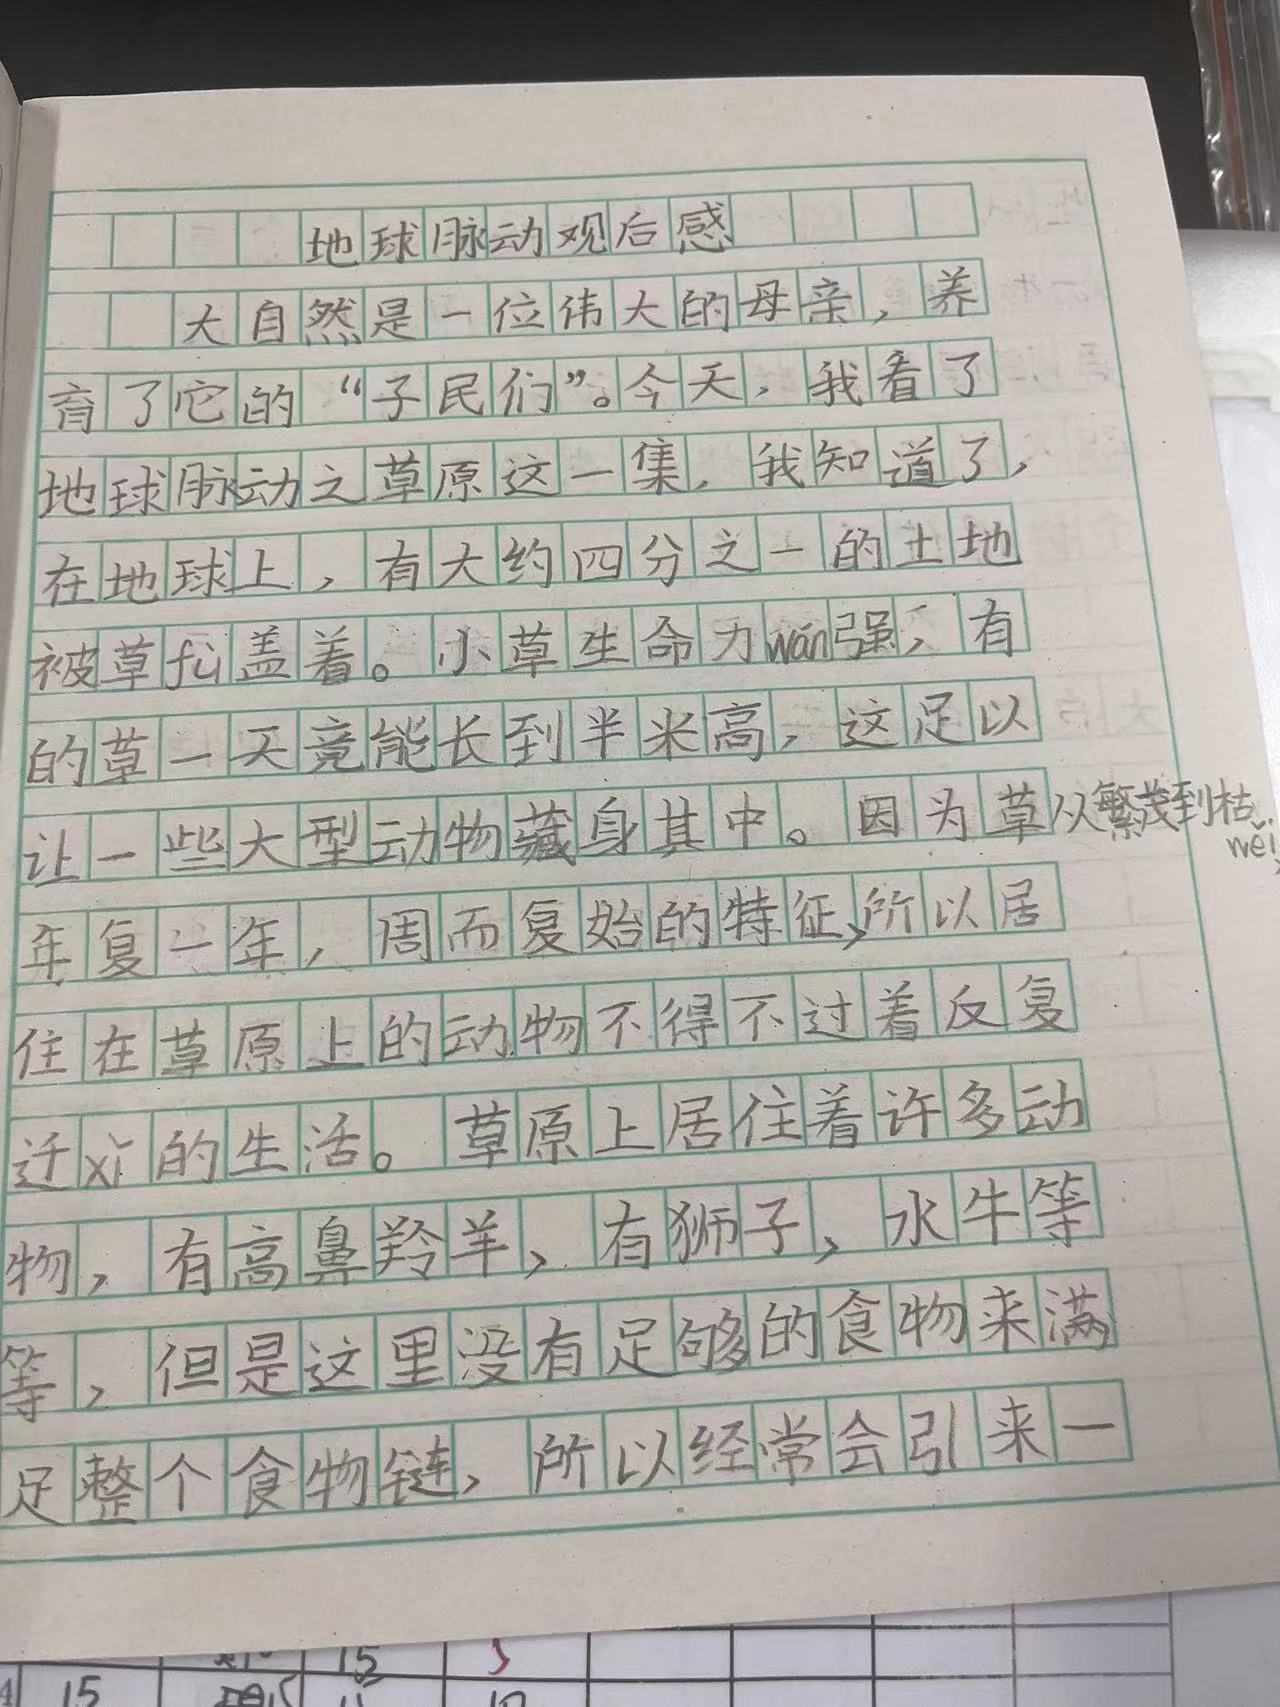 地球脉动观后感
大自然是一位伟大的母亲，养
育了它的“子民们”。今天，我看了
地球脉动之草原这一集，我知道了，
在地球上，有大约四分之一的土地
被草fù盖着。小草生命力wán强，有
的草一天竟能长到半米高，这足以
让一些大型动物藏身其中。因为草从繁茂到枯
wěi，
年复一年，周而复始的特征，所以居
住在草原上的动物不得不过着反复
迁xǐ的生活。草原上居住着许多动
物，有高鼻羚羊、有狮子，水牛等
等，但是这里没有足够的食物来满
足整个食物链，所以经常会引来一
15
5
4
15